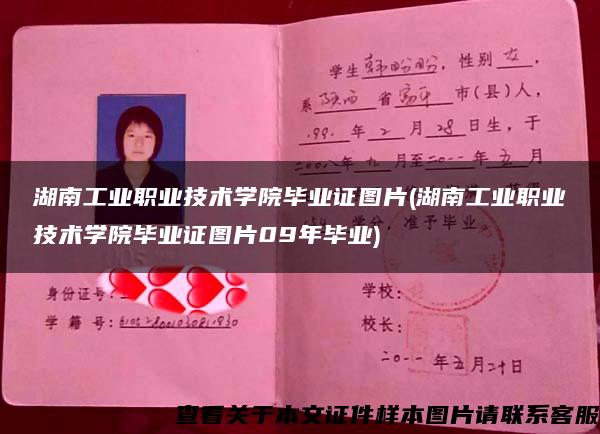 学生韩盼盼，性别女，
系陕西省富平市(县)人，
1991年2月28日生，于
二〇〇八年九月至二〇一一年五月
湖南工业职业技术学院毕业证图片(湖南工业职业
技术学院毕业证图片09年毕业)
学分，准予毕业。
身份证号：
学籍号：
学校：
校长：
二〇一一年五月二十日
查看关于本文证件样本图片请联系客服